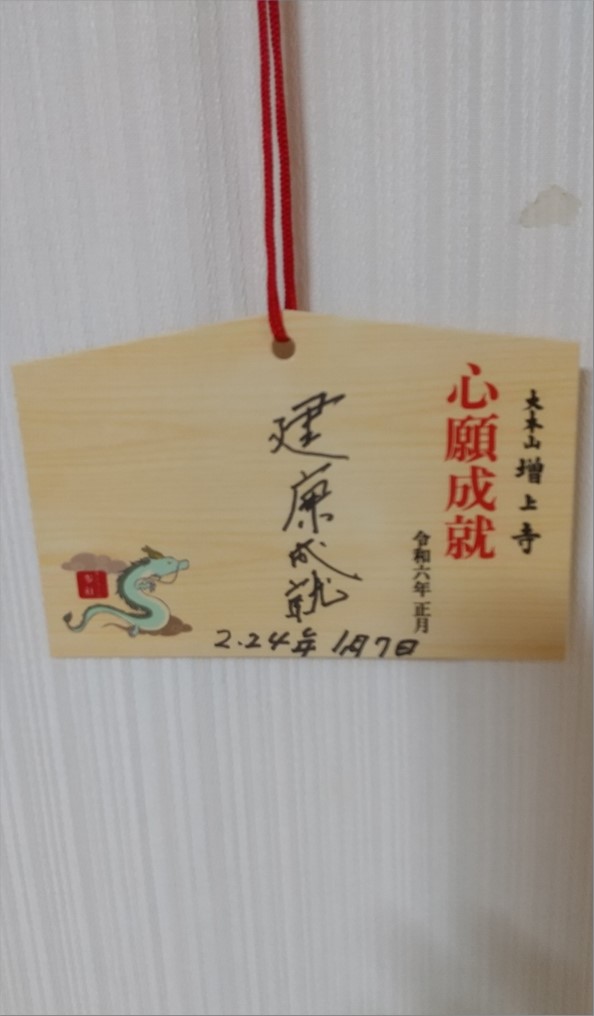 大本山 増上寺
心願成就
令和六年 正月
建康成就
2.24年 1月7日